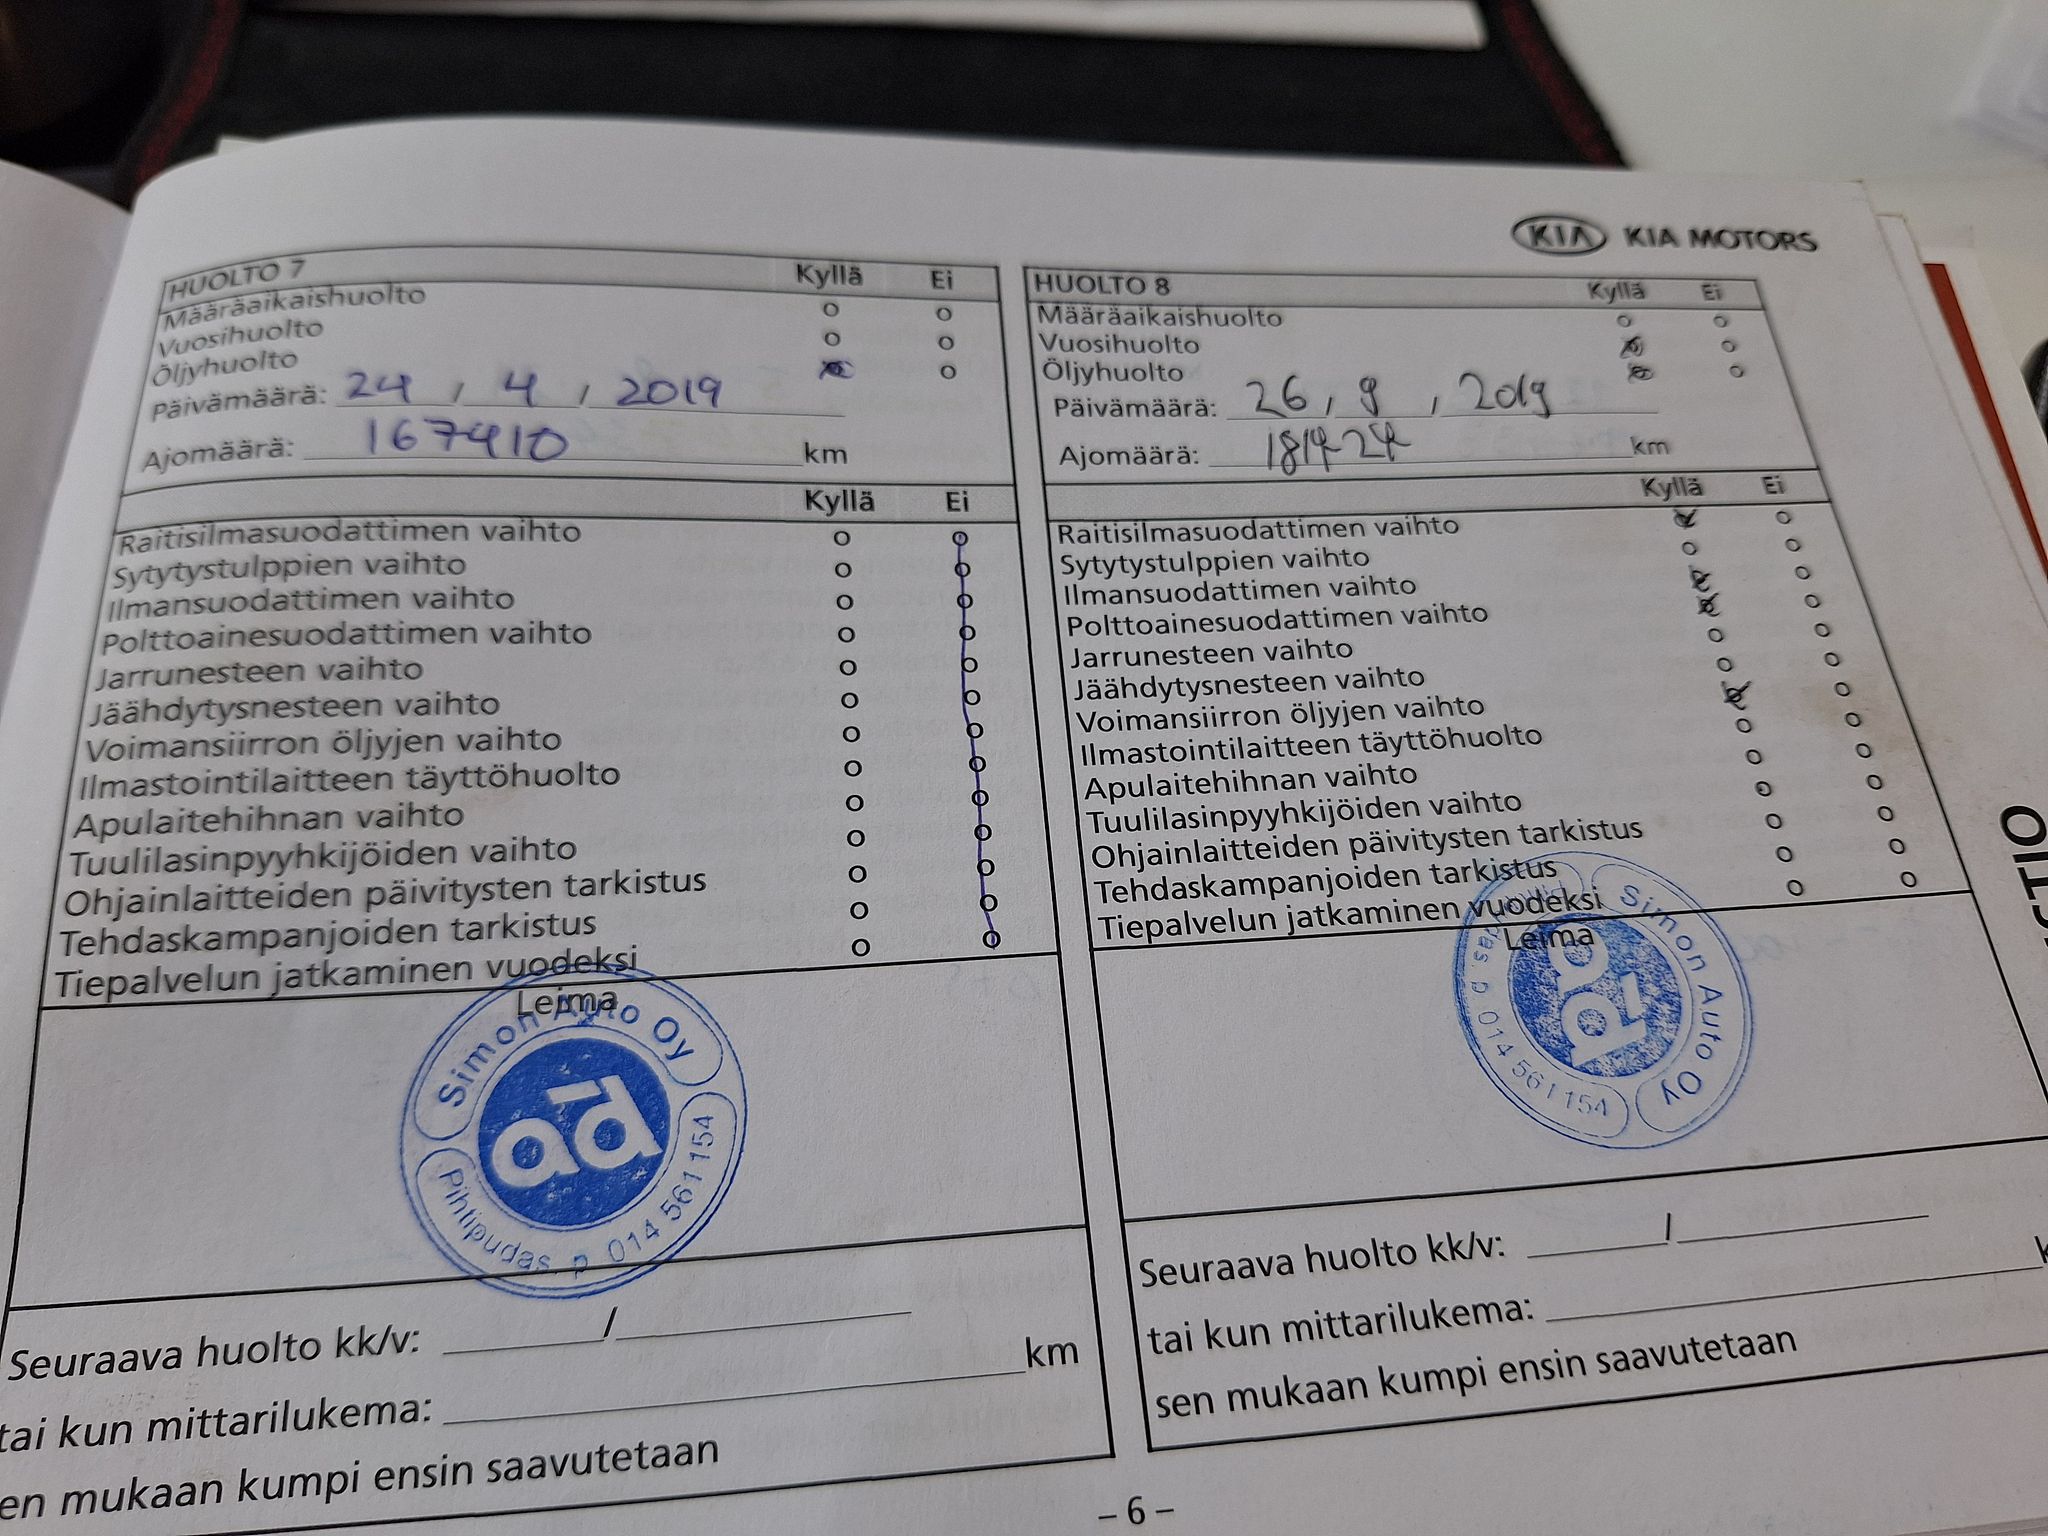 KIA KIA MOTORS
HUOLTO 7 Kyllä Ei
Määräaikaishuolto o o
Vuosihuolto o o
Öljyhuolto o o
Päivämäärä: 24 / 4 / 2019
Ajomäärä: 167410 km
Kyllä Ei
Raitisilmasuodattimen vaihto o o
Sytytystulppien vaihto o o
Ilmansuodattimen vaihto o o
Polttoainesuodattimen vaihto o o
Jarrunesteen vaihto o o
Jäähdytysnesteen vaihto o o
Voimansiirron öljyjen vaihto o o
Ilmastointilaitteen täyttöhuolto o o
Apulaitehihnan vaihto o o
Tuulilasinpyyhkijöiden vaihto o o
Ohjainlaitteiden päivitysten tarkistus o o
Tehdaskampanjoiden tarkistus o o
Tiepalvelun jatkaminen vuodeksi o o
Leima
Simon Auto Oy
ad
Pihtipudas, p. 014 561 154
Seuraava huolto kk/v: /
tai kun mittarilukema: km
en mukaan kumpi ensin saavutetaan
HUOLTO 8 Kyllä Ei
Määräaikaishuolto o o
Vuosihuolto o
Öljyhuolto o o
Päivämäärä: 26 / 9 / 2019
Ajomäärä: 181424 km
Kyllä Ei
Raitisilmasuodattimen vaihto o
Sytytystulppien vaihto o o
Ilmansuodattimen vaihto o
Polttoainesuodattimen vaihto o
Jarrunesteen vaihto o o
Jäähdytysnesteen vaihto o o
Voimansiirron öljyjen vaihto o
Ilmastointilaitteen täyttöhuolto o o
Apulaitehihnan vaihto o o
Tuulilasinpyyhkijöiden vaihto o o
Ohjainlaitteiden päivitysten tarkistus o o
Tehdaskampanjoiden tarkistus o o
Tiepalvelun jatkaminen vuodeksi o o
Leima
Simon Auto Oy
ad
p. 014 561 154
Seuraava huolto kk/v: /
tai kun mittarilukema:
sen mukaan kumpi ensin saavutetaan
– 6 –